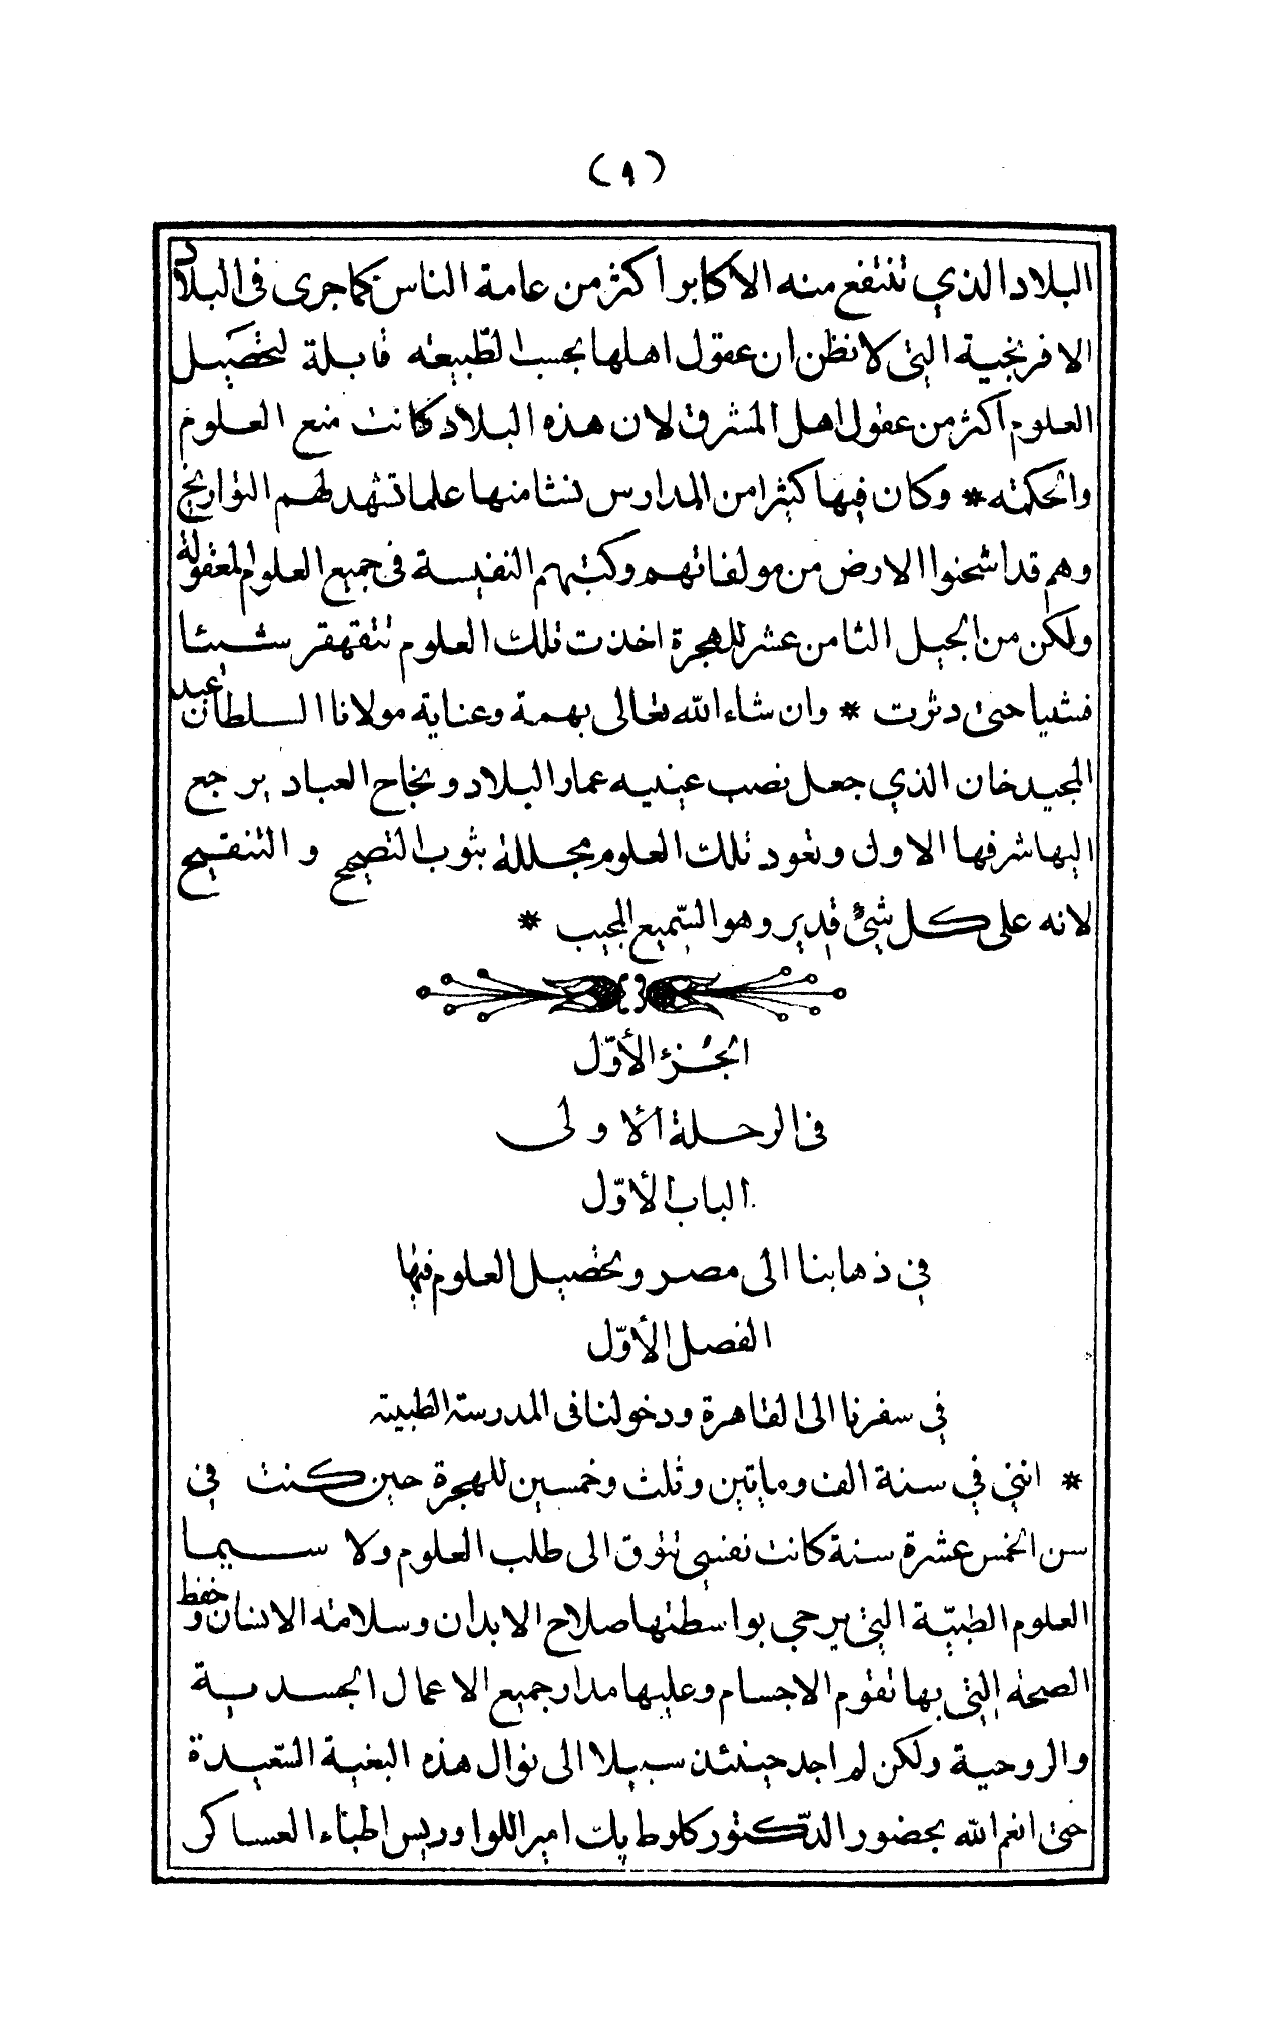 (٩)
البلاد الذي تنتفع منه الاكابر اكثر من عامة الناس كما جرى فى البلاد
الافرنجية التي لا نظن ان عقول اهلها بحسب الطّبيعه قابلة لتحصيل
العلوم اكثر من عقول اهل المشرق لان هذه البلاد كانت منبع العلوم
والحكمته * وكان فيها كثيرا من المدارس نشا منها علما تشهد لهم التواريخ
وهم قد اشحنوا الارض من مولفاتهم وكتبهم النفيسة فى جميع العلوم المعقولة
ولكن من الجيل الثامن عشر للهجرة اخذت تلك العلوم تتقهقر شيئا
فشيا حتى دثرت * وان شاء الله تعالى بهمة وعناية مولانا السلطان عبد
المجيد خان الذي جعل نصب عينيه عمار البلاد ونجاح العباد يرجع
اليها شرفها الاول وتعود تلك العلوم مجللة بثوب التصيح و التنقيح
لانه على كل شيئ قدير وهو السّميع المجيب *
الجُزء الأوّل
فى الرحلة الأولى
الباب الأوّل
في ذهابنا الى مصر وتحصيل العلوم فيها
الفصل الأوّل
في سفرنا الى القاهرة ودخولنا فى المدرسة الطبية
* انني في سنة الف وماتين وثلث وخمسين للهجرة حين كنت في
سن الخمس عشرة سنة كانت نفسي تتوق الى طلب العلوم ولا سيما
العلوم الطبيّة التي يرجى بواسطتها صلاح الابدان وسلامته الانسان وحفظ
الصحة التي بها تقوم الاجسام وعليها مدار جميع الاعمال الجسدية
والروحية ولكن لم اجد حينئذ سبيلا الى نوال هذه البغية السّعيدة
حتى انعم الله بحضور الدّكتور كلوط بك امير اللوا وريس اطباء العساكر